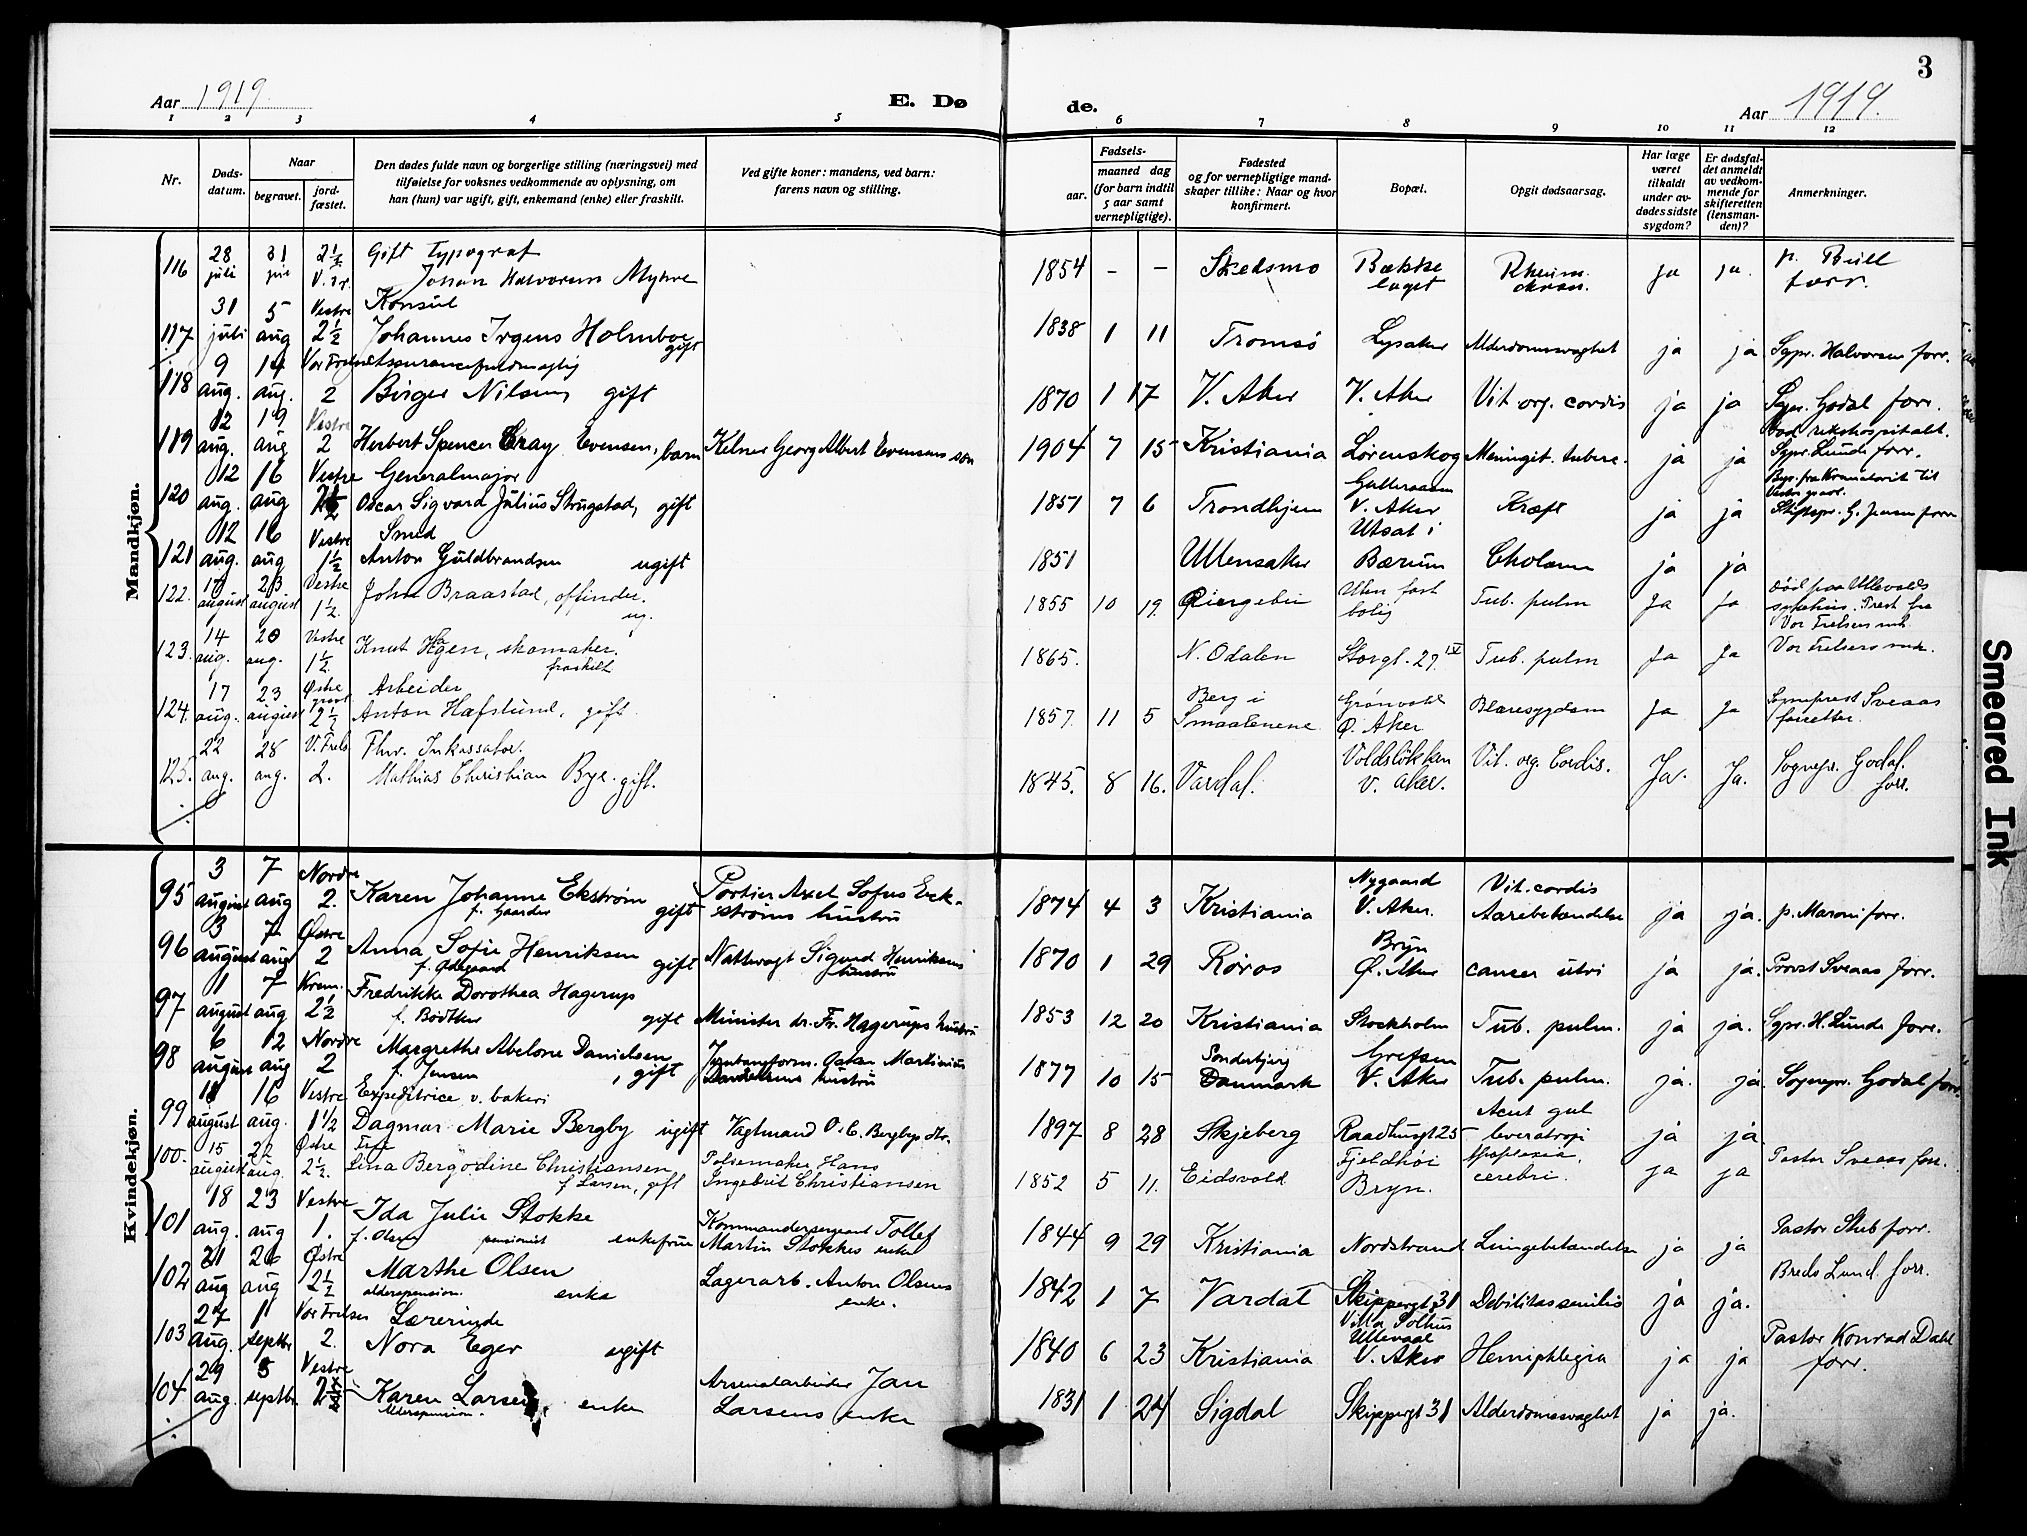 3
Aar 1919.
E. Døde.
Aar 1919.
1 2 3 4 5 6 7 8 9 10 11 12
Nr.
Døds-
datum.
Naar
begravet.
jord-
fæstet.
Den dødes fulde navn og borgerlige stilling (næringsvei) med
tilføielse for voksnes vedkommende av oplysning, om
han (hun) var ugift, gift, enkemand (enke) eller fraskilt.
Ved gifte koner: mandens, ved barn:
farens navn og stilling.
Fødsels-
aar.
maaned dag
(for barn indtil
5 aar samt
vernepligtige).
Fødested
og for vernepligtige mand-
skaper tillike: Naar og hvor
konfirmert.
Bopæl.
Opgit dødsaarsag.
Har læge
været
tilkaldt
under av-
dødes sidste
sygdom?
Er dødsfal-
det anmeldt
av vedkom-
mende for
skifteretten
(lensman-
den)?
Anmerkninger.
Mandkjøn.
116 28 juli 31 juli 2½ Gift Typograf
Johan Halvorsen Myhre 1854 - - Skedsmo Bækkelaget Rheum. chron. ja ja. forr.
117 31 juli 5 aug Vestre 2½ Konsul
Johannes Irgens Holmboe gift 1838 1 11 Tromsø Lysaker Alderdomssvaghet ja ja Sgpr. Halvorsen forr.
118 9 aug. 14 aug. Vor Frelser 2
Birger Nilsen gift 1870 1 17 V. Aker V. Aker Vit. org. cordis ja ja Sgpr. Godal forr.
119 12 aug. 19 aug Vestre 2 Herbert Spencer Cray Evensen, barn Kelner Georg Albert Evensens søn 1904 7 15 Kristiania Lørenskog Meningit. tuberc. ja ja Sgpr. Lunde forr.
120 12 aug. 16 aug Vestre Generalmajor
Oscar Sigvard Julius Strugstad, gift 1851 7 6 Trondhjem V. Aker Kræft ja ja
121 12 aug. 16 aug Vestre 1½ Smed
Anton Guldbrandsen ugift 1851 Ullensaker Utsat i Bærum ja ja
122. 17 august 23 august Vestre 1½ John Braastad, ug. 1855 10 19. Uten fast bolig Tub. pulm Ja Ja
Vor Frelsers mk.
123. 14 aug. 20 aug. Vestre 1½. Knut Hagen, skomaker. fraskilt 1865. N. Odalen Storgt. 27 IV Tub. pulm Ja Ja Vor Frelsers mk.
124. 17 aug. 23 august Østre 2½ Arbeider
Anton Hafslund, gift 1857. 11 5 Berg i Smaalenene Grønvold Ø. Aker Blæresygdom Ja Ja Sogneprest Sveaas
125. 22 aug. 28 aug. V. Frels 2. Fhv. Inkassator.
Mathias Christian Bye. gift. 1845. 8 16. Vardal. Voldsløkken V. Aker. Vit. org. Cordis. Ja. Ja. Sognepr. Godal. forr.
Kvindekjøn.
95 3 august 7 aug Nordre 2. Karen Johanne Ekstrøm f. Gaarder gift Portier Axel Sofus Eckstrøms hustru 1874 4 3 Kristiania Nygaard V. Aker. Vit. cordis Aarebetændelse ja ja. p. Maroni forr.
96 3 august 7 aug Østre 2 Anna Sofie Henriksen f. Ødegaard gift Nattevagt Sigurd Henriksens hustru 1870 1 29 Røros Bryn Ø. Aker cancer utri ja ja. Provst Sveaas forr.
97 1 august 7 aug Krem. 2½ Fredrikke Dorothea Hagerup f. Bødtker gift Minister dr. Fr. Hagerups hustru 1853 12 20 Kristiania Stockholm Tub. pulm. ja ja. Sgpr. H. Lunde forr.
98 6 august 12 aug Nordre 2 Margrethe Abelone Danielsen f. Jensen, gift Oskar Martinius Danielsens hustru 1877 10 15 Sønderbjerg Danmark Grefsen V. Aker Tub. pulm. ja. ja Sognepr. Godal forr.
99 11 august 16 aug. Vestre 1½ Expeditrice v. bakeri
Dagmar Marie Bergby ugift Vagtmand O. C. Bergbys dtr. 1897 8 28 Skjeberg Raadhusgt 25 Acut gul leveratropi ja ja
100. 15 august 22 aug. Østre 2½ Frue
Lina Bergodine Christiansen f. Larsen, gift Hans Ingebrit Christiansen 1852 5 11. Eidsvold Fjeldhøi Bryn. Apoplexia cerebri. ja ja Pastor Sveaas forr.
101 18 aug. 23 aug Vestre 1. Ida Julie Stokke f. Olsen pensionist enkefrue Kommandersergeant Tollef Martin Stokkes enke 1844 9 29 Kristiania Nordstrand Lungebetændelse ja ja Pastor Skub forr.
102 21 aug 26 aug Østre 2½ Marthe Olsen alderspension. enke Lagerarb. Anton Olsens enke. 1842 1 7 Vardal Skippergt 31 Debilitas senilis ja ja. Breds Lund. forr.
103 27 aug. 1 septbr Vor Frelser 2. Lærerinde
Nora Eger ugift 1840 6 23 Kristiania Villa Solhus Ullevaal V. Aker Hemiphlegia ja ja Pastor Konrad Dahl forr.
104 29 aug. 5 septbr. Vestre Karen Larsen alderspension. enke Arsenalarbeider Jan Larsens enke 1831 1 24 Sigdal Skippergt 31 Alderdomssvaghet ja ja.
Smeared Ink